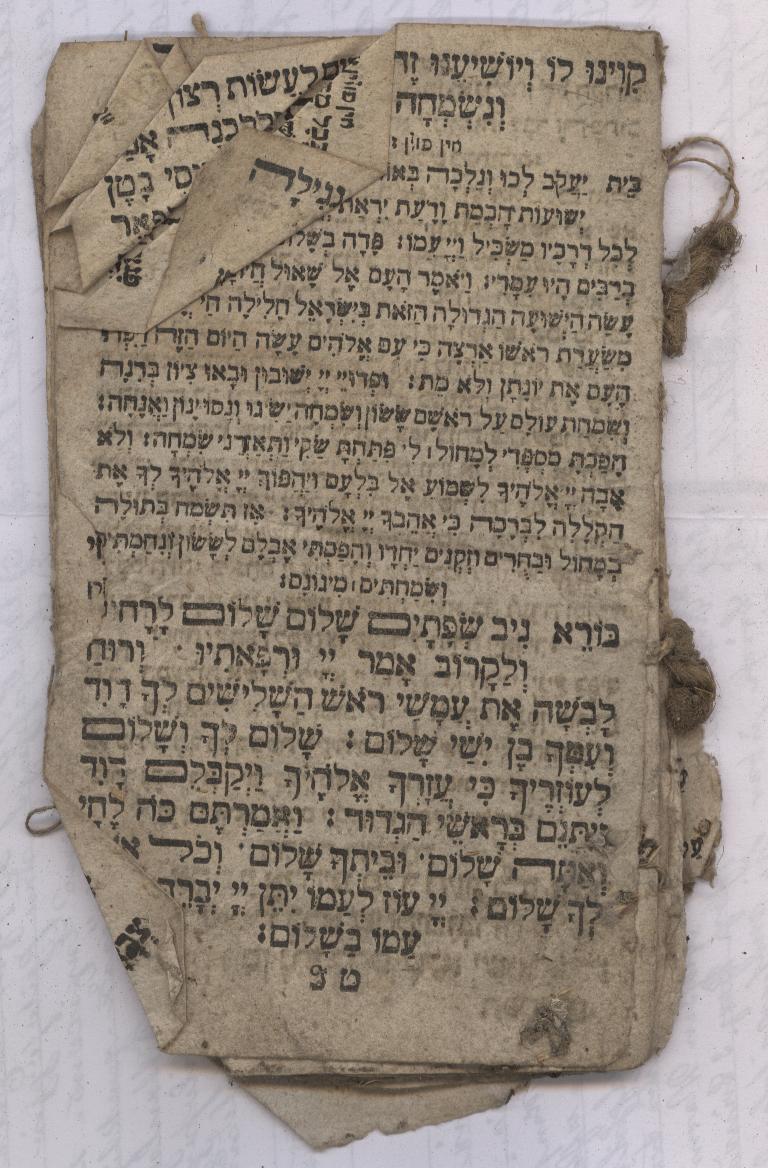 קִוִּינוּ לוֹ וְיוֹשִׁיעֵנוּ זֶה
וְנִשְׂמְחָה
וְנָגִילָה
לַעֲשׂוֹת רְצוֹן
בֵּית יַעֲקֹב לְכוּ וְנֵלְכָה בְּאוֹר
יְשׁוּעוֹת חָכְמַת וָדָעַת יִרְאַת
לְכָל דְּרָכָיו מַשְׂכִּיל וַיְיָ עִמּוֹ: פָּדָה בְשָׁלוֹם
בְרַבִּים הָיוּ עִמָּדִי: וַיֹּאמֶר הָעָם אֶל שָׁאוּל הֲיוֹנָתָן
עָשָׂה הַיְשׁוּעָה הַגְּדוֹלָה הַזֹּאת בְּיִשְׂרָאֵל חָלִילָה חַי
מִשַּׂעֲרַת רֹאשׁוֹ אַרְצָה כִּי עִם אֱלֹהִים עָשָׂה הַיּוֹם הַזֶּה
הָעָם אֶת יוֹנָתָן וְלֹא מֵת: וּפְדוּיֵי יְיָ יְשׁוּבוּן וּבָאוּ צִיּוֹן בְּרִנָּה
וְשִׂמְחַת עוֹלָם עַל רֹאשָׁם שָׂשׂוֹן וְשִׂמְחָה יַשִּׂיגוּ וְנָסוּ יָגוֹן וַאֲנָחָה:
הָפַכְתָּ מִסְפְּדִי לְמָחוֹל לִי פִּתַּחְתָּ שַׂקִּי וַתְּאַזְּרֵנִי שִׂמְחָה: וְלֹא
אָבָה יְיָ אֱלֹהֶיךָ לִשְׁמוֹעַ אֶל בִּלְעָם וַיַּהֲפוֹךְ יְיָ אֱלֹהֶיךָ לְךָ אֶת
הַקְּלָלָה לִבְרָכָה כִּי אֲהֵבְךָ יְיָ אֱלֹהֶיךָ: אָז תִּשְׂמַח בְּתוּלָה
בְּמָחוֹל וּבַחֻרִים וּזְקֵנִים יַחְדָּו וְהָפַכְתִּי אֶבְלָם לְשָׂשׂוֹן וְנִחַמְתִּים
וְשִׂמַּחְתִּים מִיגוֹנָם:
בּוֹרֵא נִיב שְׂפָתַיִם שָׁלוֹם שָׁלוֹם לָרָחוֹק
וְלַקָּרוֹב אָמַר יְיָ וּרְפָאתִיו וְרוּחַ
לָבְשָׁה אֶת עֲמָשַׂי רֹאשׁ הַשָּׁלִישִׁים לְךָ דָוִד
וְעִמְּךָ בֶן יִשַׁי שָׁלוֹם: שָׁלוֹם לְךָ וְשָׁלוֹם
לְעוֹזְרֶיךָ כִּי עֲזָרְךָ אֱלֹהֶיךָ וַיְקַבְּלֵם דָּוִד
וַיִּתְּנֵם בְּרָאשֵׁי הַגְּדוּד: וַאֲמַרְתֶּם כֹּה לֶחָי
וְאַתָּה שָׁלוֹם וּבֵיתְךָ שָׁלוֹם וְכֹל
לְךָ שָׁלוֹם: יְיָ עוֹז לְעַמּוֹ יִתֵּן יְיָ יְבָרֵךְ
עַמּוֹ בַשָּׁלוֹם: